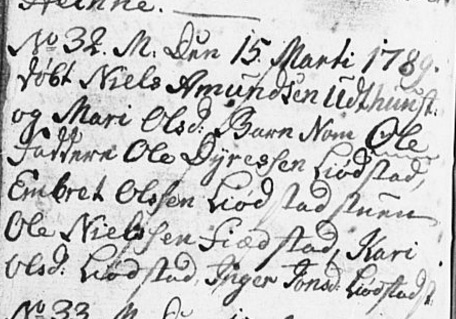 Helnne.
No 32. M. Den 15 Marti 1789.
døbt Niels Amundsen Udthuust.
og Mari Olsd: Barn Nom Ole
Faddere Ole Dyressen Liødstad,
Embret Olssen Liødstadstuen
Ole Nielssen Fiædstad, Kari
Olsd: Liødstad, Inger Jonsd: Liødstad
No 33. M. Den